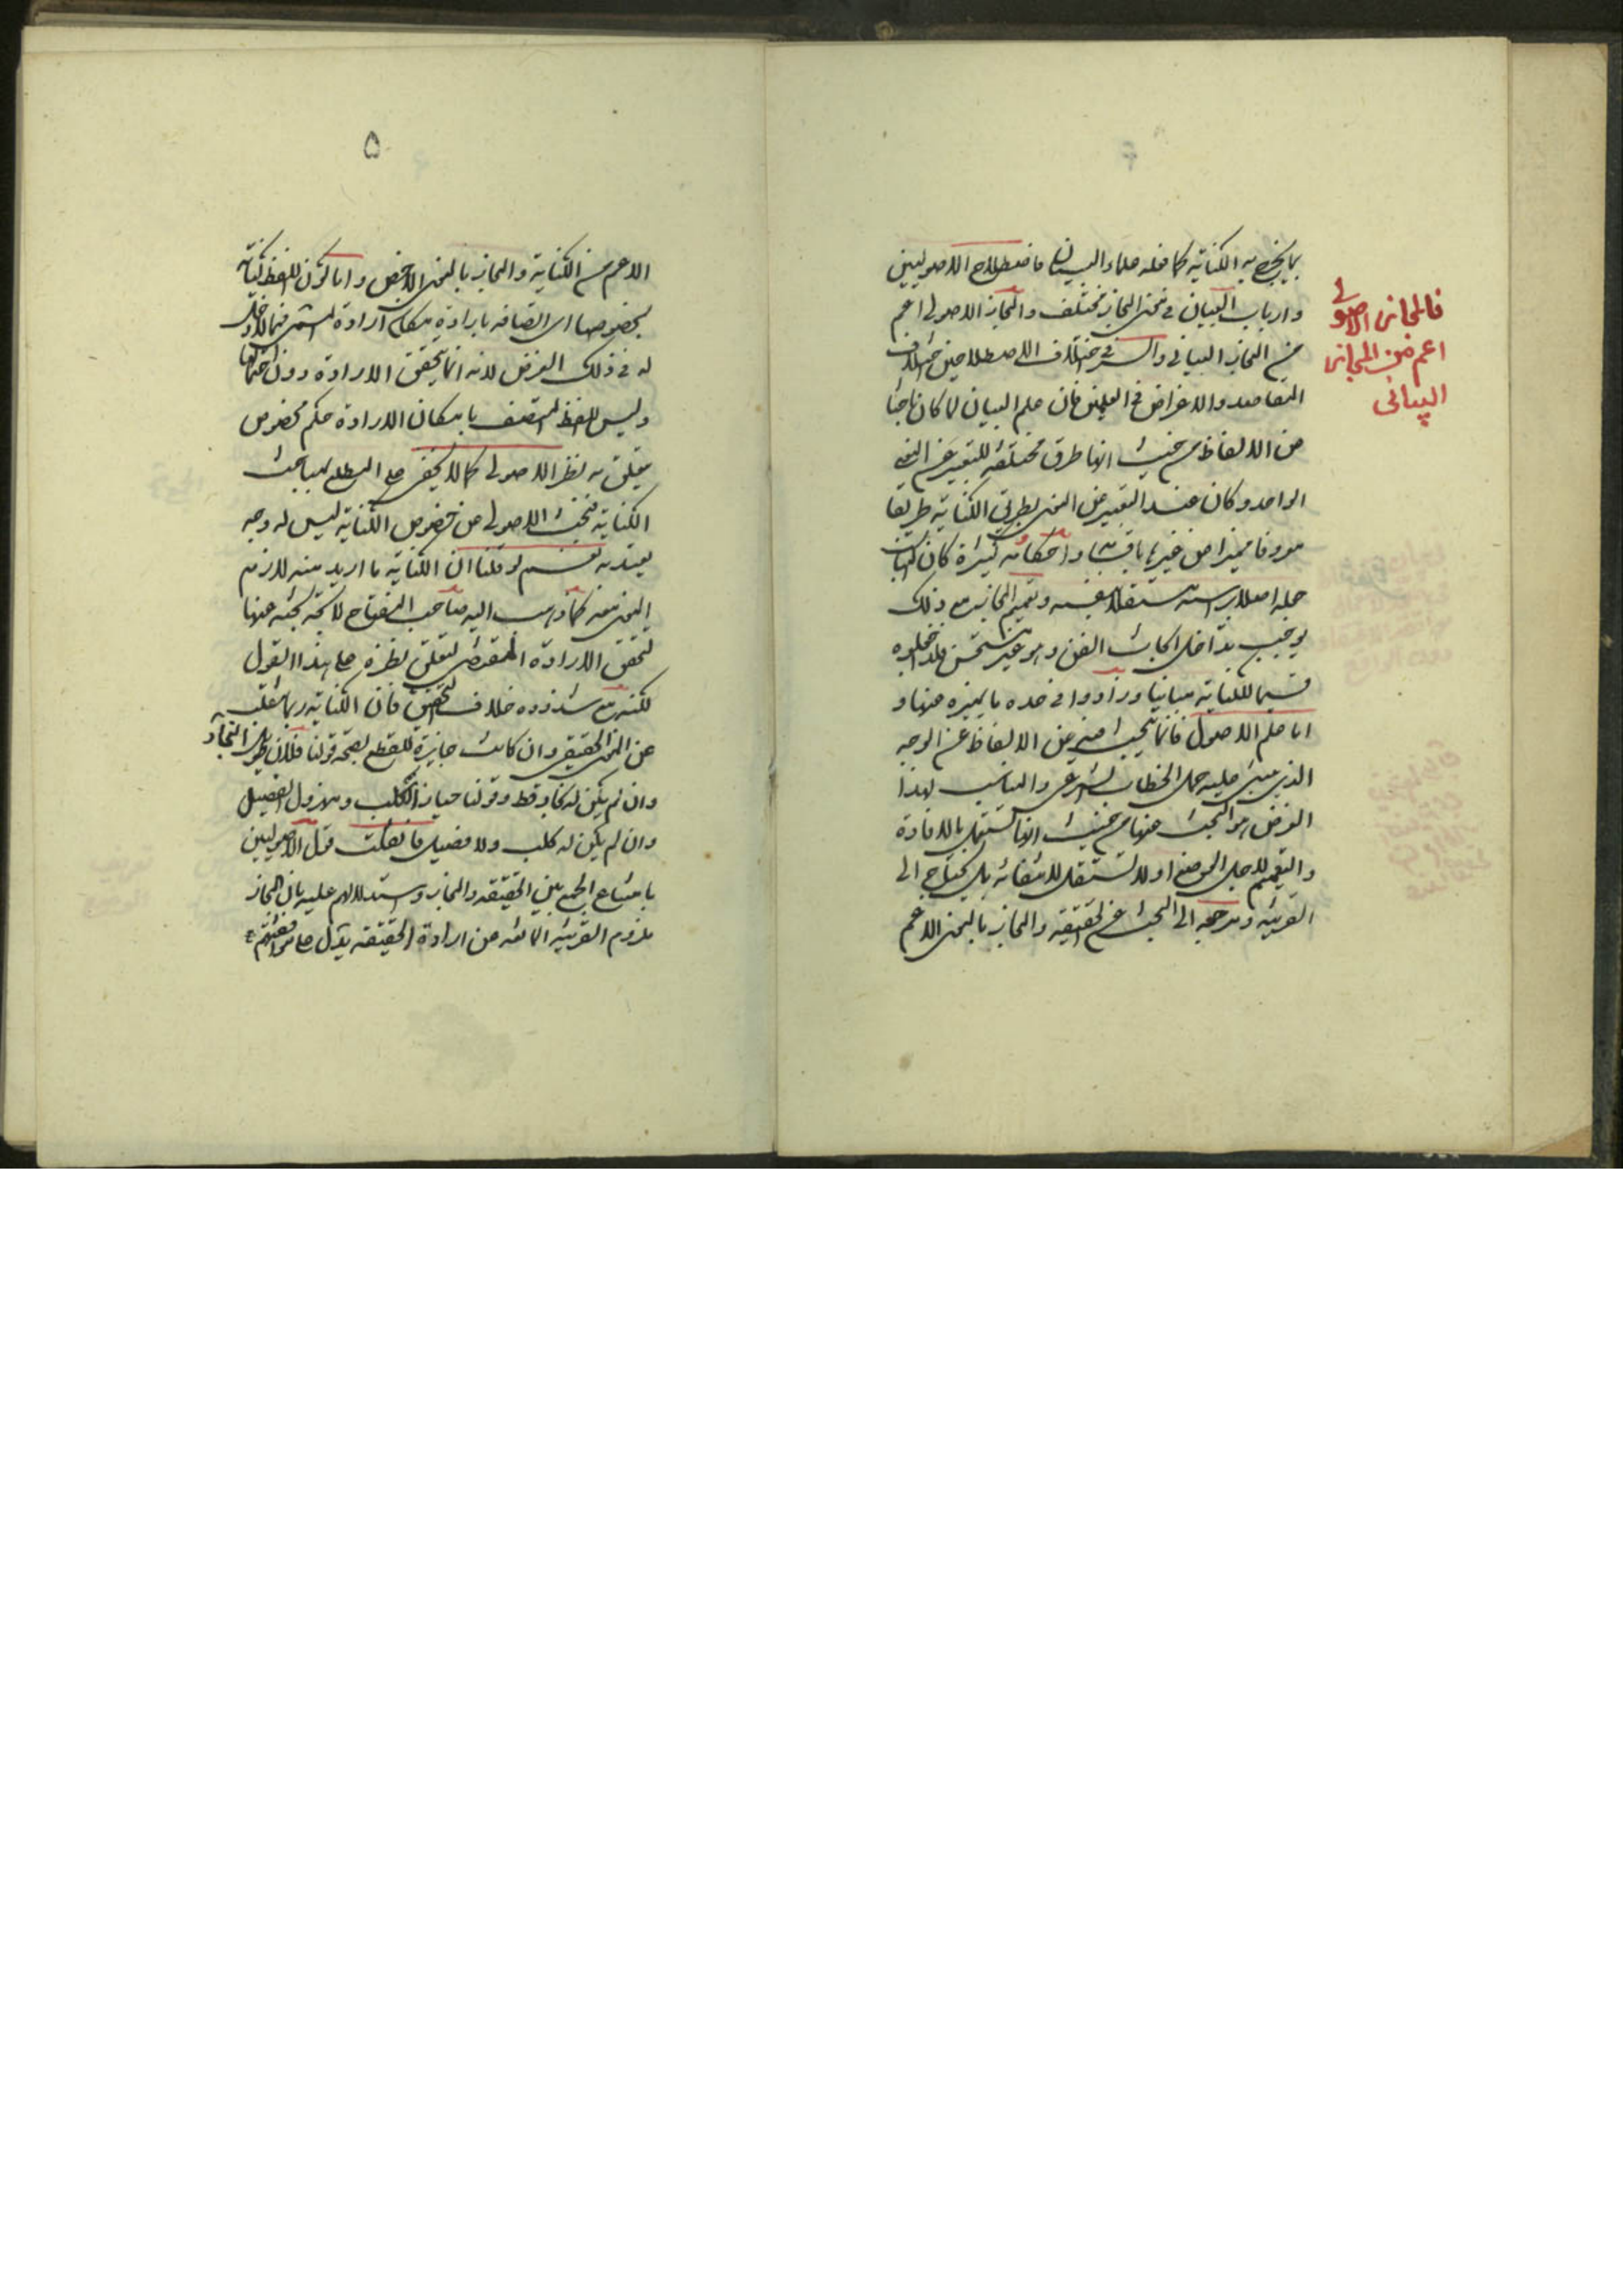 بما يخرج به الكناية كما فعله علماء البيان فاصطلاح الاصوليين
وارباب البيان في معنى المجاز مختلف والمجاز الاصولي اعم
من المجاز البياني والسر في اختلاف الاصطلاحين اختلاف
المقاصد والاغراض في العلمين فان علم البيان لما كان باحثا
عن الالفاظ من حيث انها طرق مختلفة للتعبير عن المعنى
الواحد وكان عند التعبير عن المعنى بطريق الكناية طريقا
معروفا مميزا عن غيرها باقسامه واحكامه كثيرة كان
جعله اصلا براسه مستقلا بنفسه وتعميم المجاز مع ذلك
يوجب تداخل ابحاث الفن وهو غير مستحسن فلذا جعلوه
قسيما للكناية مباينا وزادوا في حده ما يميزه عنها و
اما علم الاصول فانما يبحث فيه عن الالفاظ على الوجه
الذي يبتنى عليه حمل الخطاب الشرعي والمناسب لهذا
الغرض هو البحث عنها من حيث انها تستقل بالافادة
والتفهيم لاجل الوضع او لا تستقل لانتفائه بل يحتاج الى
القرينة ومرجعه الى البحث عن الحقيقة والمجاز بالمعنى الاعم
فالمجاز الاصولي
اعم من المجاز
البياني
۵
الاعم من الكناية والمجاز بالمعنى الاخص واما كون اللفظ كناية
بخصوصها اي اتصافه بارادة امكان ارادة المسمى فلا دخل
له في ذلك الغرض لانه انما يتحقق الارادة دون احتمالها
وليس للفظ المتصف بامكان الارادة حكم مخصوص
يتعلق به نظر الاصولي كما لا يخفى على المطلع بمباحث
الكناية فبحث الاصولي عن خصوص الكناية ليس له وجه
يعتد به نعم لو قلنا ان الكناية ما اريد منه لازم
المعنى معه كما ذهب اليه صاحب المفتاح لاتجه بحثه عنها
لتحقق الارادة المقتضي لتعلق نظره على هذا القول
لكنه مع شذوذه خلاف التحقيق فان الكناية ربما
عن المعنى الحقيقي وان كانت جايزة للقطع بصحة قولنا فلان طويل النجاد
وان لم يكن له نجاد قط وقولنا جبان الكلب ومهزول الفصيل
وان لم يكن له كلب ولا فصيل فان قلت قول الاصوليين
بامتناع الجمع بين الحقيقة والمجاز واستدلالهم عليه بان المجاز
ملزوم القرينة المانعة عن ارادة الحقيقة يدل على موافقتهم